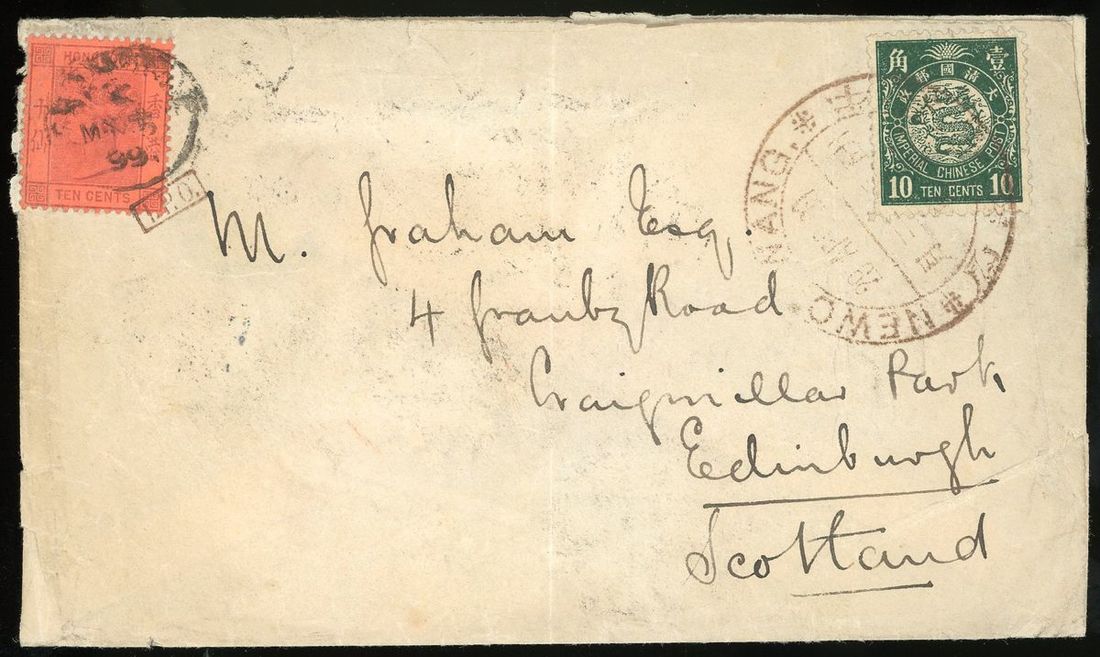 HONG
香港
TEN CENTS
99
I.P.O.
壹角
大清國郵政
IMPERIAL CHINESE POST
10 TEN CENTS 10
NEWCHWANG
M. Graham Esq.
4 Granby Road
Craigmillar Park
Edinburgh
Scotland